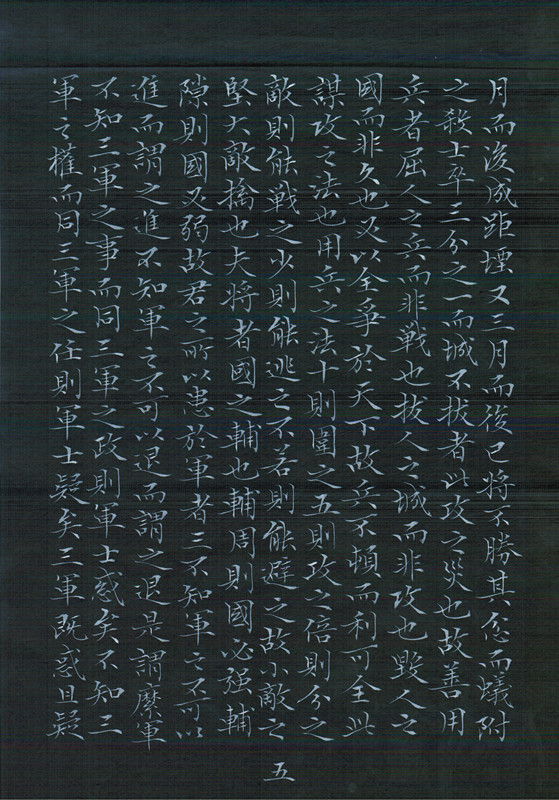 月而後成距堙又三月而後已將不勝其忿而蟻附
之殺士卒三分之一而城不拔者此攻之災也故善用
兵者屈人之兵而非戦也拔人之城而非攻也毀人之
國而非久也必以全爭於天下故兵不頓而利可全此
謀攻之法也用兵之法十則圍之五則攻之倍則分之
敵則能戦之少則能逃之不若則能避之故小敵之
堅大敵擒也夫將者國之輔也輔周則國必強輔
隙則國必弱故君之所以患於軍者三不知軍之不可以
進而謂之進不知軍之不可以退而謂之退是謂縻軍
不知三軍之事而同三軍之政則軍士惑矣不知三
軍之權而同三軍之任則軍士疑矣三軍既惑且疑
五